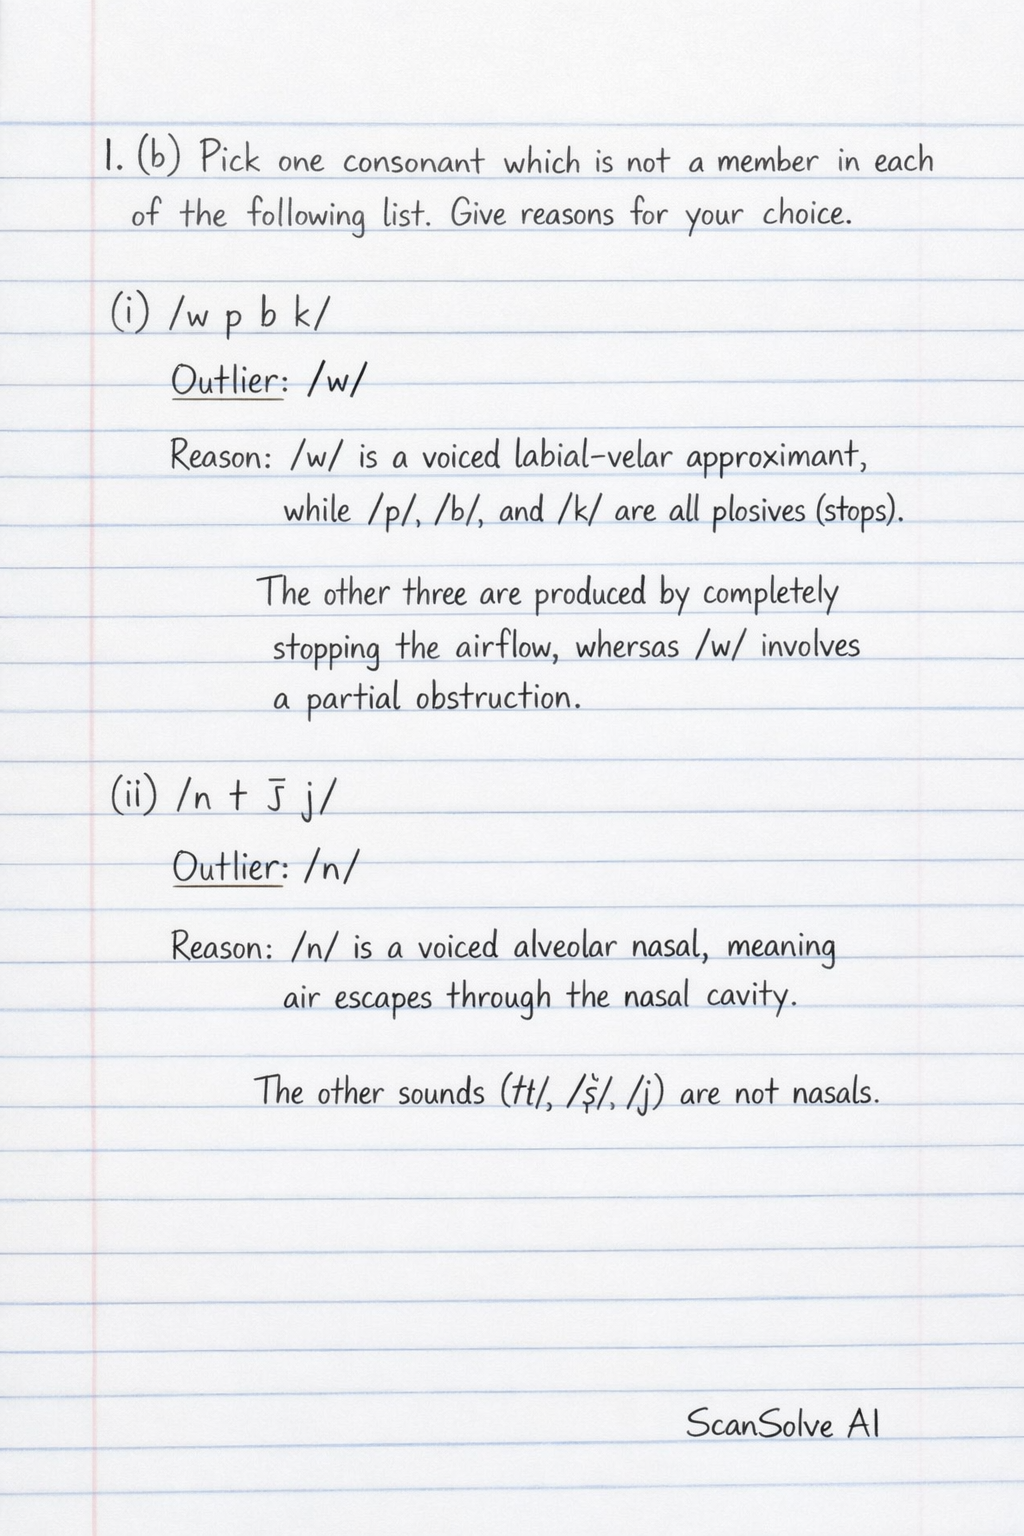 1. (b) Pick one consonant which is not a member in each
of the following list. Give reasons for your choice.
(i) /w p b k/
Outlier: /w/
Reason: /w/ is a voiced labial-velar approximant,
while /p/, /b/, and /k/ are all plosives (stops).
The other three are produced by completely
stopping the airflow, whersas /w/ involves
a partial obstruction.
(ii) /n t j/
Outlier: /n/
Reason: /n/ is a voiced alveolar nasal, meaning
air escapes through the nasal cavity.
The other sounds are not nasals.
ScanSolve AI